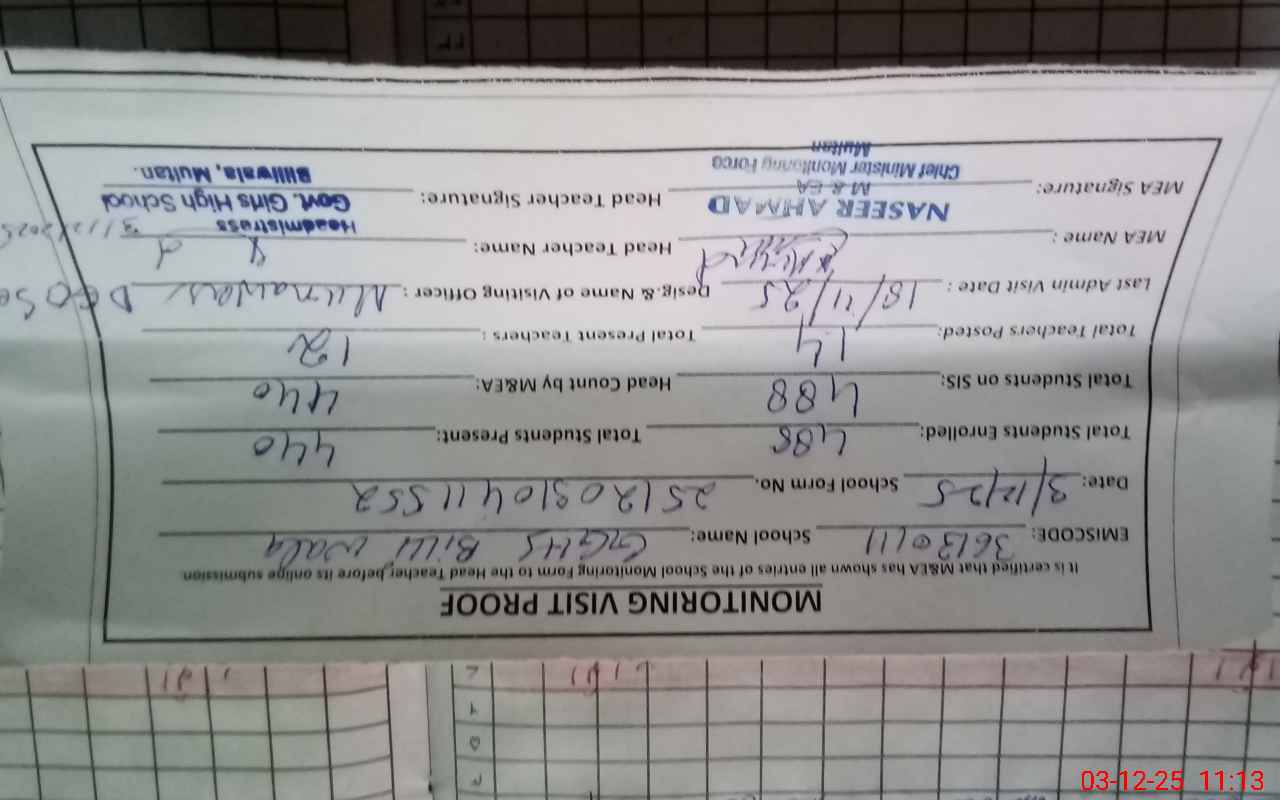 MONITORING VISIT PROOF
It is certified that M&EA has shown all entries of the School Monitoring Form to the Head Teacher before its online submission.
EMISCODE: 36130111 School Name: GGHS Billi wala
Date: 3/12/25 School Form No. 2512031041152
Total Students Enrolled: 488 Total Students Present: 440
Total Students on SIS: 488 Head Count by M&EA: 440
Total Teachers Posted: 14 Total Present Teachers : 12
Last Admin Visit Date : 18/11/25 Desig.& Name of Visiting Officer : Munawar DEO Se
MEA Name : Head Teacher Name:
NASEER AHMAD
M & EA
Chief Minister Monitoring Force
Multan
MEA Signature: Head Teacher Signature:
Headmistress 3/12/2025
Govt. Girls High School
Billiwala, Multan.
03-12-25 11:13